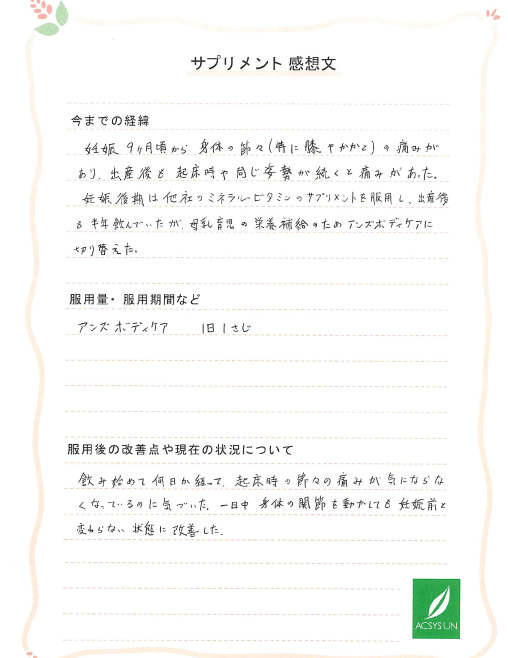 サプリメント 感想文
今までの経緯
妊娠 9ヶ月頃から 身体の節々(特に膝やかかと)の痛みが
あり、出産後も 起床時や同じ姿勢が続くと痛みがあった。
妊娠後期は他社のミネラル・ビタミンのサプリメントを服用し、出産後
も半年飲んでいたが、母乳育児の栄養補給のためアンズボディケアに
切り替えた。
服用量・服用期間など
アンズボディケア 1日1さじ
服用後の改善点や現在の状況について
飲み始めて何日か経って、起床時の節々の痛みが気にならな
くなっているのに気づいた。一日中 身体の関節を動かしても妊娠前と
変わらない状態に改善した。
ACSYSUN